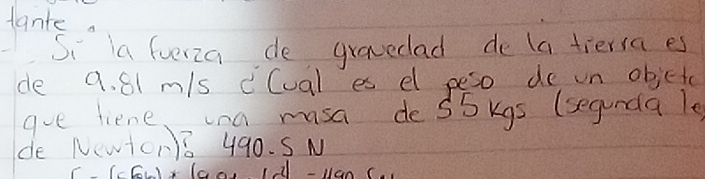 tante.
Si la fuerza de gravedad de la tierra es
de 9.81 m/s ¿Cual es el peso de un objeto
que tiene una masa de 55 kgs (segunda ley
de Newton)? 490.5 N